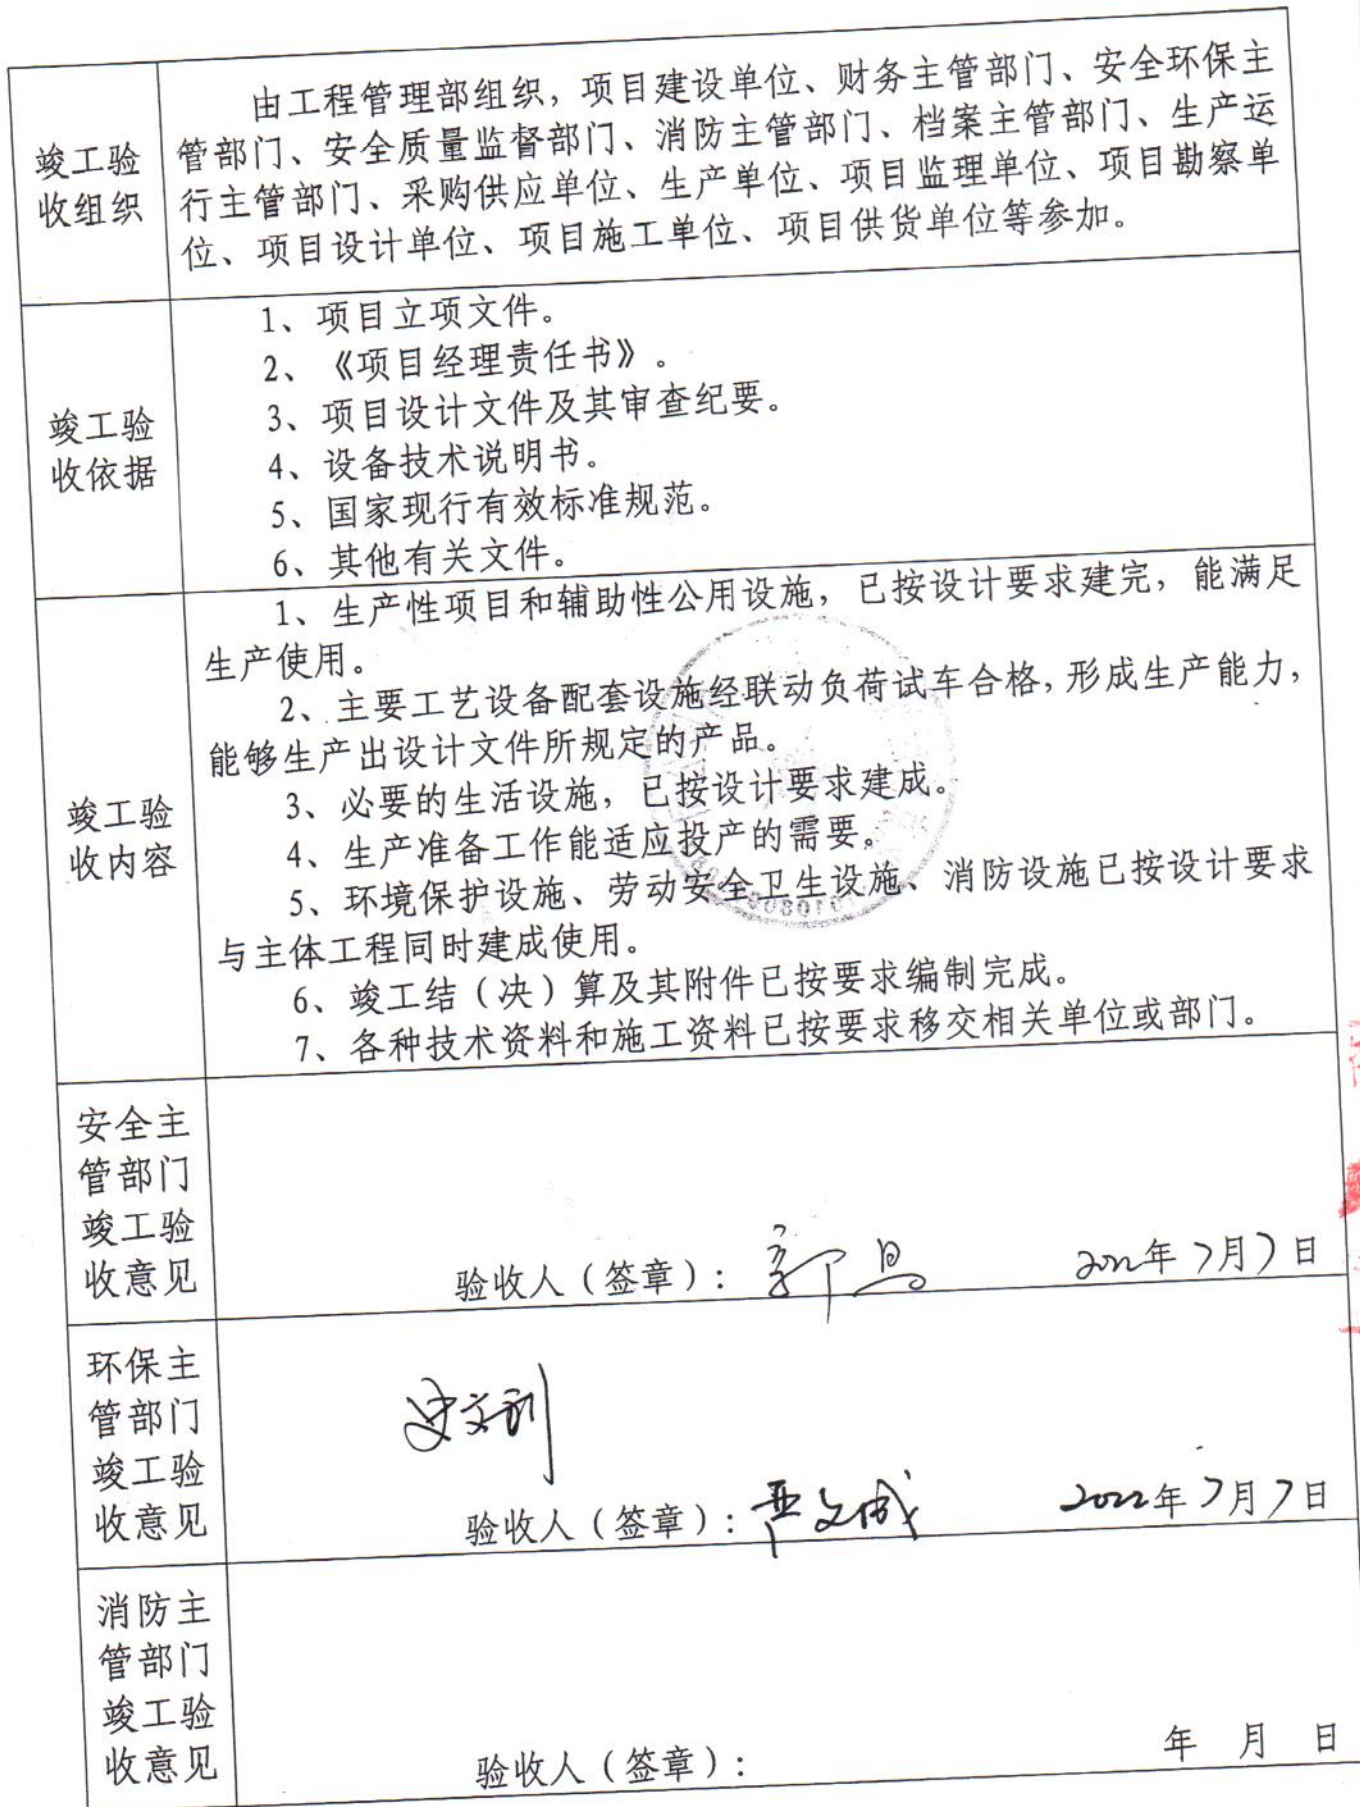 竣工验
收组织
由工程管理部组织，项目建设单位、财务主管部门、安全环保主
管部门、安全质量监督部门、消防主管部门、档案主管部门、生产运
行主管部门、采购供应单位、生产单位、项目监理单位、项目勘察单
位、项目设计单位、项目施工单位、项目供货单位等参加。
竣工验
收依据
1、项目立项文件。
2、《项目经理责任书》。
3、项目设计文件及其审查纪要。
4、设备技术说明书。
5、国家现行有效标准规范。
6、其他有关文件。
竣工验
收内容
1、生产性项目和辅助性公用设施，已按设计要求建完，能满足
生产使用。
2、主要工艺设备配套设施经联动负荷试车合格，形成生产能力，
能够生产出设计文件所规定的产品。
3、必要的生活设施，已按设计要求建成。
4、生产准备工作能适应投产的需要。
5、环境保护设施、劳动安全卫生设施、消防设施已按设计要求
与主体工程同时建成使用。
6、竣工结（决）算及其附件已按要求编制完成。
7、各种技术资料和施工资料已按要求移交相关单位或部门。
安全主
管部门
竣工验
收意见
验收人（签章）：
2022年7月7日
环保主
管部门
竣工验
收意见
验收人（签章）：
2022年7月7日
消防主
管部门
竣工验
收意见
验收人（签章）：
年 月 日